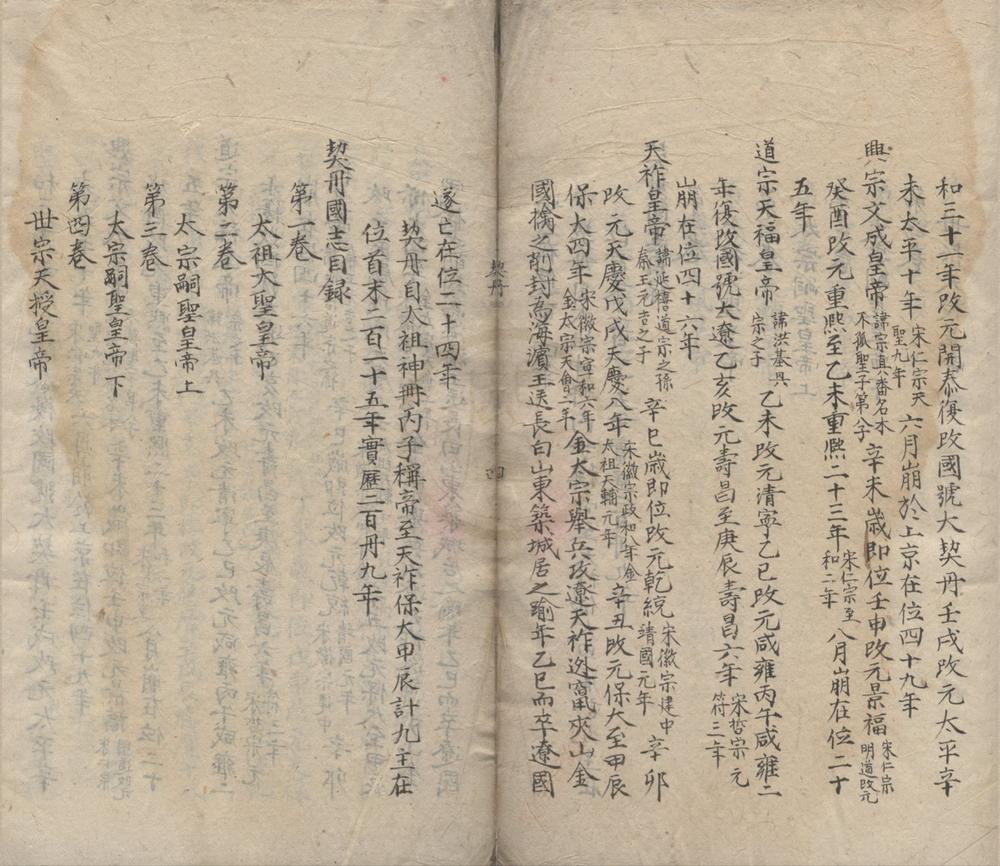 和三十一年改元開泰復改國號大契丹壬戌改元太平辛
未太平十年宋仁宗天聖九年六月崩於上京在位四十九年
興宗文成皇帝諱宗真番名木不孤聖子第八子辛未歲即位壬申改元景福宋仁宗明道改元
癸酉改元重熙至乙未重熙二十三年宋仁宗至和二年八月崩在位二十
五年
道宗天福皇帝諱洪基興宗之子乙未改元清寧乙巳改元咸雍丙午咸雍二
年復改國號大遼乙亥改元壽昌至庚辰壽昌六年宋哲宗元符三年
崩在位四十六年
天祚皇帝諱延禧道宗之孫秦王元吉之子辛巳歲即位改元乾統宋徽宗建中靖國元年辛卯
改元天慶戊戌天慶八年宋徽宗政和八年金太祖天輔元年辛丑改元保大至甲辰
保大四年宋徽宗宣和六年金太宗天會二年金太宗舉兵攻遼天祚迯竄夾山金
國擒之削封為海濵王送長白山東築城居之踰年乙巳而卒遼國
契丹
四
遂亡在位二十四年
契丹自太祖神冊丙子稱帝至天祚保大甲辰計九主在
位首末二百一十五年實歷二百卅九年
契丹國志目録
第一卷
太祖大聖皇帝
第二卷
太宗嗣聖皇帝上
第三卷
太宗嗣聖皇帝下
第四卷
世宗天授皇帝